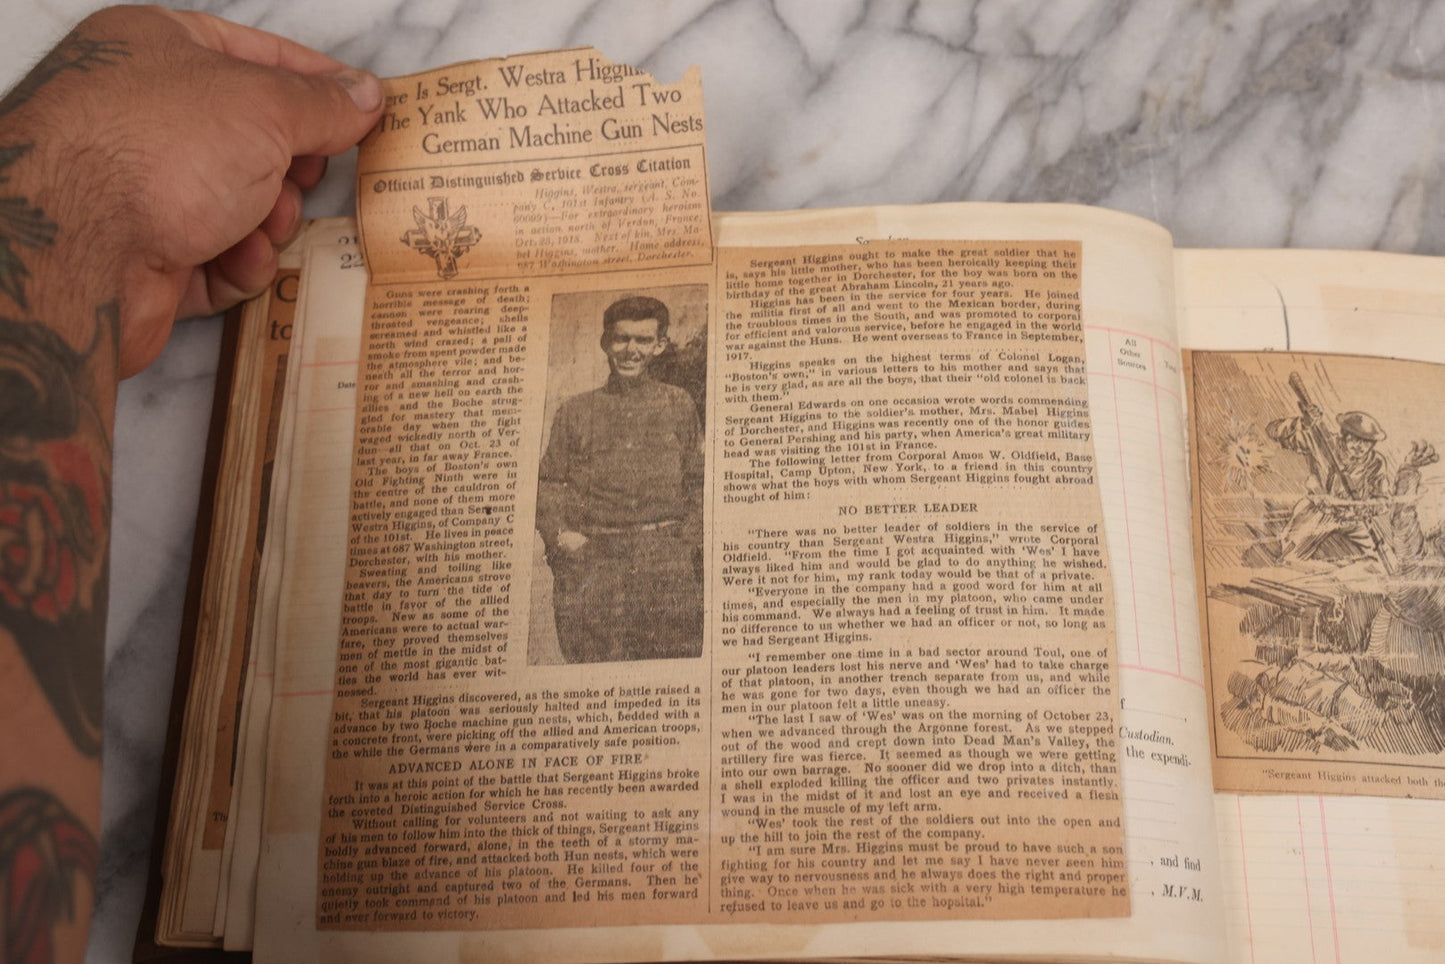 ere Is Sergt. Westra Higgin
The Yank Who Attacked Two
German Machine Gun Nests
Official Distinguished Service Cross Citation
Higgins, Westra, sergeant, Com-
pany C, 101st Infantry (A. S. No.
60099)—For extraordinary heroism
in action north of Verdun, France,
Oct. 23, 1918. Next of kin, Mrs. Ma-
bel Higgins, mother. Home address,
687 Washington street, Dorchester.
Guns were crashing forth a
horrible message of death;
cannon were roaring deep-
throated vengeance; shells
screamed and whistled like a
north wind crazed; a pall of
smoke from spent powder made
the atmosphere vile; and be-
neath all the terror and hor-
ror and smashing and crash-
ing of a new hell on earth the
allies and the Boche strug-
gled for mastery that mem-
orable day when the fight
waged wickedly north of Ver-
dun—all that on Oct. 23 of
last year, in far away France.
The boys of Boston's own
Old Fighting Ninth were in
the centre of the cauldron of
battle, and none of them more
actively engaged than Sergeant
Westra Higgins, of Company C
of the 101st. He lives in peace
times at 687 Washington street,
Dorchester, with his mother.
Sweating and toiling like
beavers, the Americans strove
that day to turn the tide of
battle in favor of the allied
troops. New as some of the
Americans were to actual war-
fare, they proved themselves
men of mettle in the midst of
one of the most gigantic bat-
tles the world has ever wit-
nessed.
Sergeant Higgins discovered, as the smoke of battle raised a
bit, that his platoon was seriously halted and impeded in its
advance by two Boche machine gun nests, which, bedded with a
a concrete front, were picking off the allied and American troops,
the while the Germans were in a comparatively safe position.
ADVANCED ALONE IN FACE OF FIRE
It was at this point of the battle that Sergeant Higgins broke
forth into a heroic action for which he has recently been awarded
the coveted Distinguished Service Cross.
Without calling for volunteers and not waiting to ask any
of his men to follow him into the thick of things, Sergeant Higgins
boldly advanced forward, alone, in the teeth of a stormy ma-
chine gun blaze of fire, and attacked both Hun nests, which were
holding up the advance of his platoon. He killed four of the
enemy outright and captured two of the Germans. Then he
quietly took command of his platoon and led his men forward
and ever forward to victory.
Sergeant Higgins ought to make the great soldier that he
is, says his little mother, who has been heroically keeping their
little home together in Dorchester, for the boy was born on the
birthday of the great Abraham Lincoln, 21 years ago.
Higgins has been in the service for four years. He joined
the militia first of all and went to the Mexican border, during
the troublous times in the South, and was promoted to corporal
for efficient and valorous service, before he engaged in the world
war against the Huns. He went overseas to France in September,
1917.
Higgins speaks on the highest terms of Colonel Logan,
"Boston's own," in various letters to his mother and says that
he is very glad, as are all the boys, that their "old colonel is back
with them."
General Edwards on one occasion wrote words commending
Sergeant Higgins to the soldier's mother, Mrs. Mabel Higgins
of Dorchester, and Higgins was recently one of the honor guides
to General Pershing and his party, when America's great military
head was visiting the 101st in France.
The following letter from Corporal Amos W. Oldfield, Base
Hospital, Camp Upton, New York, to a friend in this country
shows what the boys with whom Sergeant Higgins fought abroad
thought of him:
NO BETTER LEADER
"There was no better leader of soldiers in the service of
his country than Sergeant Westra Higgins," wrote Corporal
Oldfield. "From the time I got acquainted with 'Wes' I have
always liked him and would be glad to do anything he wished.
Were it not for him, my rank today would be that of a private.
"Everyone in the company had a good word for him at all
times, and especially the men in my platoon, who came under
his command. We always had a feeling of trust in him. It made
no difference to us whether we had an officer or not, so long as
we had Sergeant Higgins.
"I remember one time in a bad sector around Toul, one of
our platoon leaders lost his nerve and 'Wes' had to take charge
of that platoon, in another trench separate from us, and while
he was gone for two days, even though we had an officer the
men in our platoon felt a little uneasy.
"The last I saw of 'Wes' was on the morning of October 23,
when we advanced through the Argonne forest. As we stepped
out of the wood and crept down into Dead Man's Valley, the
artillery fire was fierce. It seemed as though we were getting
into our own barrage. No sooner did we drop into a ditch, than
a shell exploded killing the officer and two privates instantly.
I was in the midst of it and lost an eye and received a flesh
wound in the muscle of my left arm.
"'Wes' took the rest of the soldiers out into the open and
up the hill to join the rest of the company.
"I am sure Mrs. Higgins must be proud to have such a son
fighting for his country and let me say I have never seen him
give way to nervousness and he always does the right and proper
thing. Once when he was sick with a very high temperature he
refused to leave us and go to the hopsital."
All
Other
Sources
Date
Custodian.
the expendi-
, and find
, M.V.M.
"Sergeant Higgins attacked both